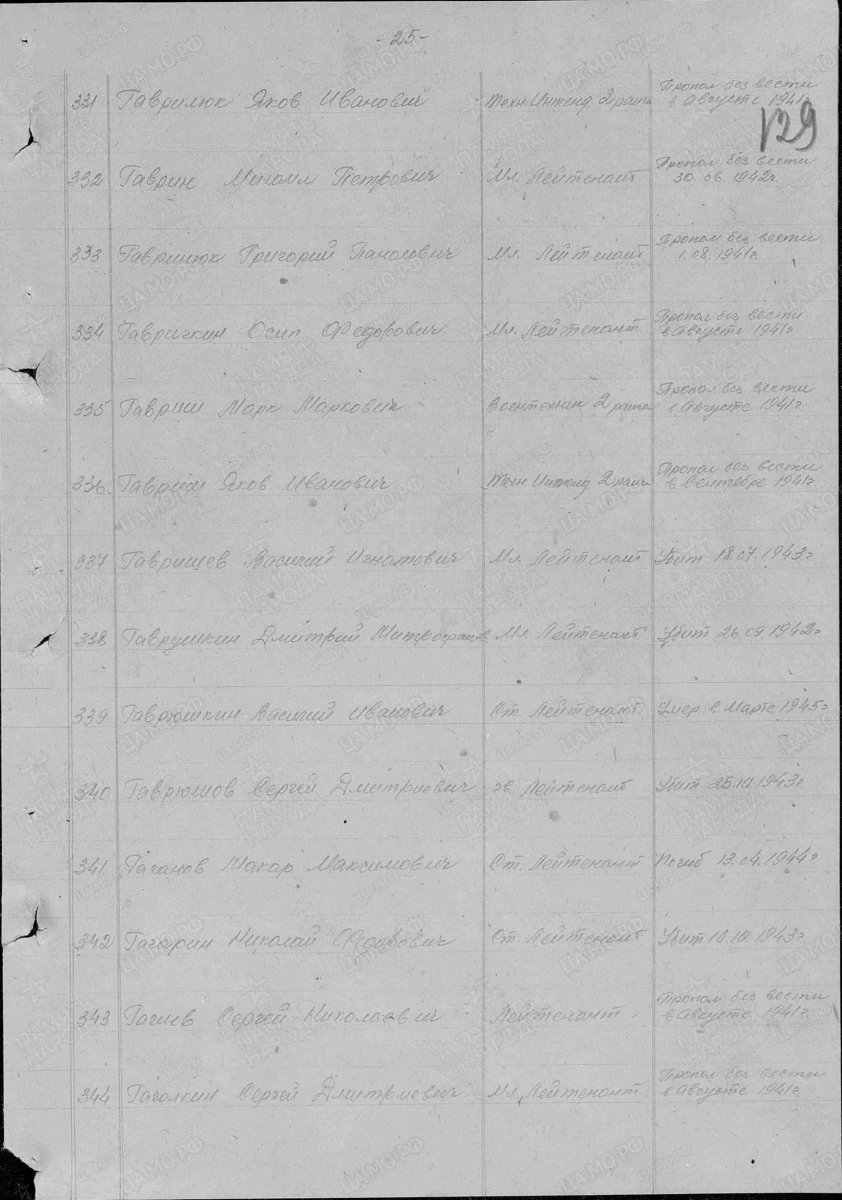 -25-
331 Гаврилюк Яков Иванович Техн. Интенд. 2 ранга Пропал без вести
в Августе 1941г
129
332 Гаврин Михаил Петрович Мл. Лейтенант Пропал без вести
30.08.1942г.
333 Гавринюк Григорий Панасович Мл. Лейтенант Пропал без вести
1.08.1941г.
334 Гавричкин Осип Федорович Мл. Лейтенант Пропал без вести
в Августе 1941г
335 Гавриш Марк Маркович Воентехник 2 ранга Пропал без вести
в Августе 1941г
336. Гавриш Яков Иванович Техн. Интенд. 2 ранга Пропал без вести
в Сентябре 1941г
337 Гаврищев Василий Игнатович Мл. Лейтенант Убит 18.07.1943г
338 Гаврушкин Дмитрий Митрофанов. Мл. Лейтенант Убит 26.09.1942г
339 Гаврюшкин Василий Иванович Ст. Лейтенант Умер в Марте 1945г
340 Гаврюшов Сергей Дмитриевич гв. Лейтенант Убит 25.10.1943г
341 Гаганов Макар Максимович Ст. Лейтенант Погиб 13.04.1944г
342 Гагарин Николай Ст. Лейтенант Убит 10.10.1943г
343 Гагиев Сергей Николаевич Лейтенант Пропал без вести
в Августе 1941г
344 Гаголкин Сергей Дмитриевич Мл. Лейтенант Пропал без вести
в Августе 1941г